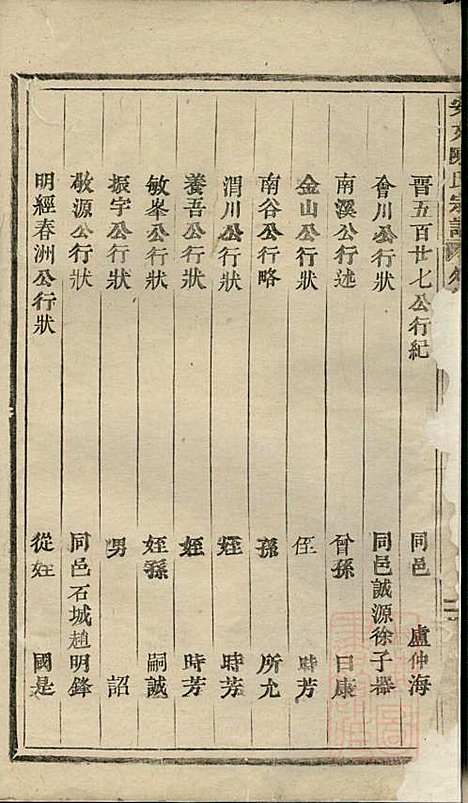 安文陳氏宗譜
晋五百廿七公行紀 同邑 盧仲海
會川公行狀 同邑誠源徐子器
南溪公行述 曾孫 曰康
金山公行狀 侄 時芳
南谷公行略 孫 所允
渭川公行狀 姪 時芳
養吾公行狀 姪 時芳
敏峯公行狀 姪孫 嗣誠
振宇公行狀 男 詔
敬源公行狀 同邑石城趙明鋒
明經春洲公行狀 從姪 國是